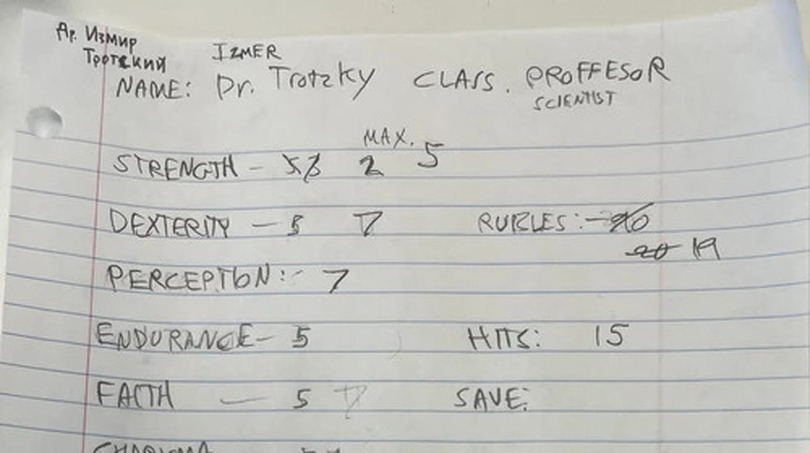 Др. Измир
Тротский
IZMER
NAME: Dr. Trotzky CLASS. PROFFESOR
SCIENTIST
MAX.
STRENGTH - 2 5
DEXTERITY - 5 7 RUBLES:
20 19
PERCEPTION: 7
ENDURANCE - 5 HITS: 15
FAITH - 5 7 SAVE:
CHARISMA